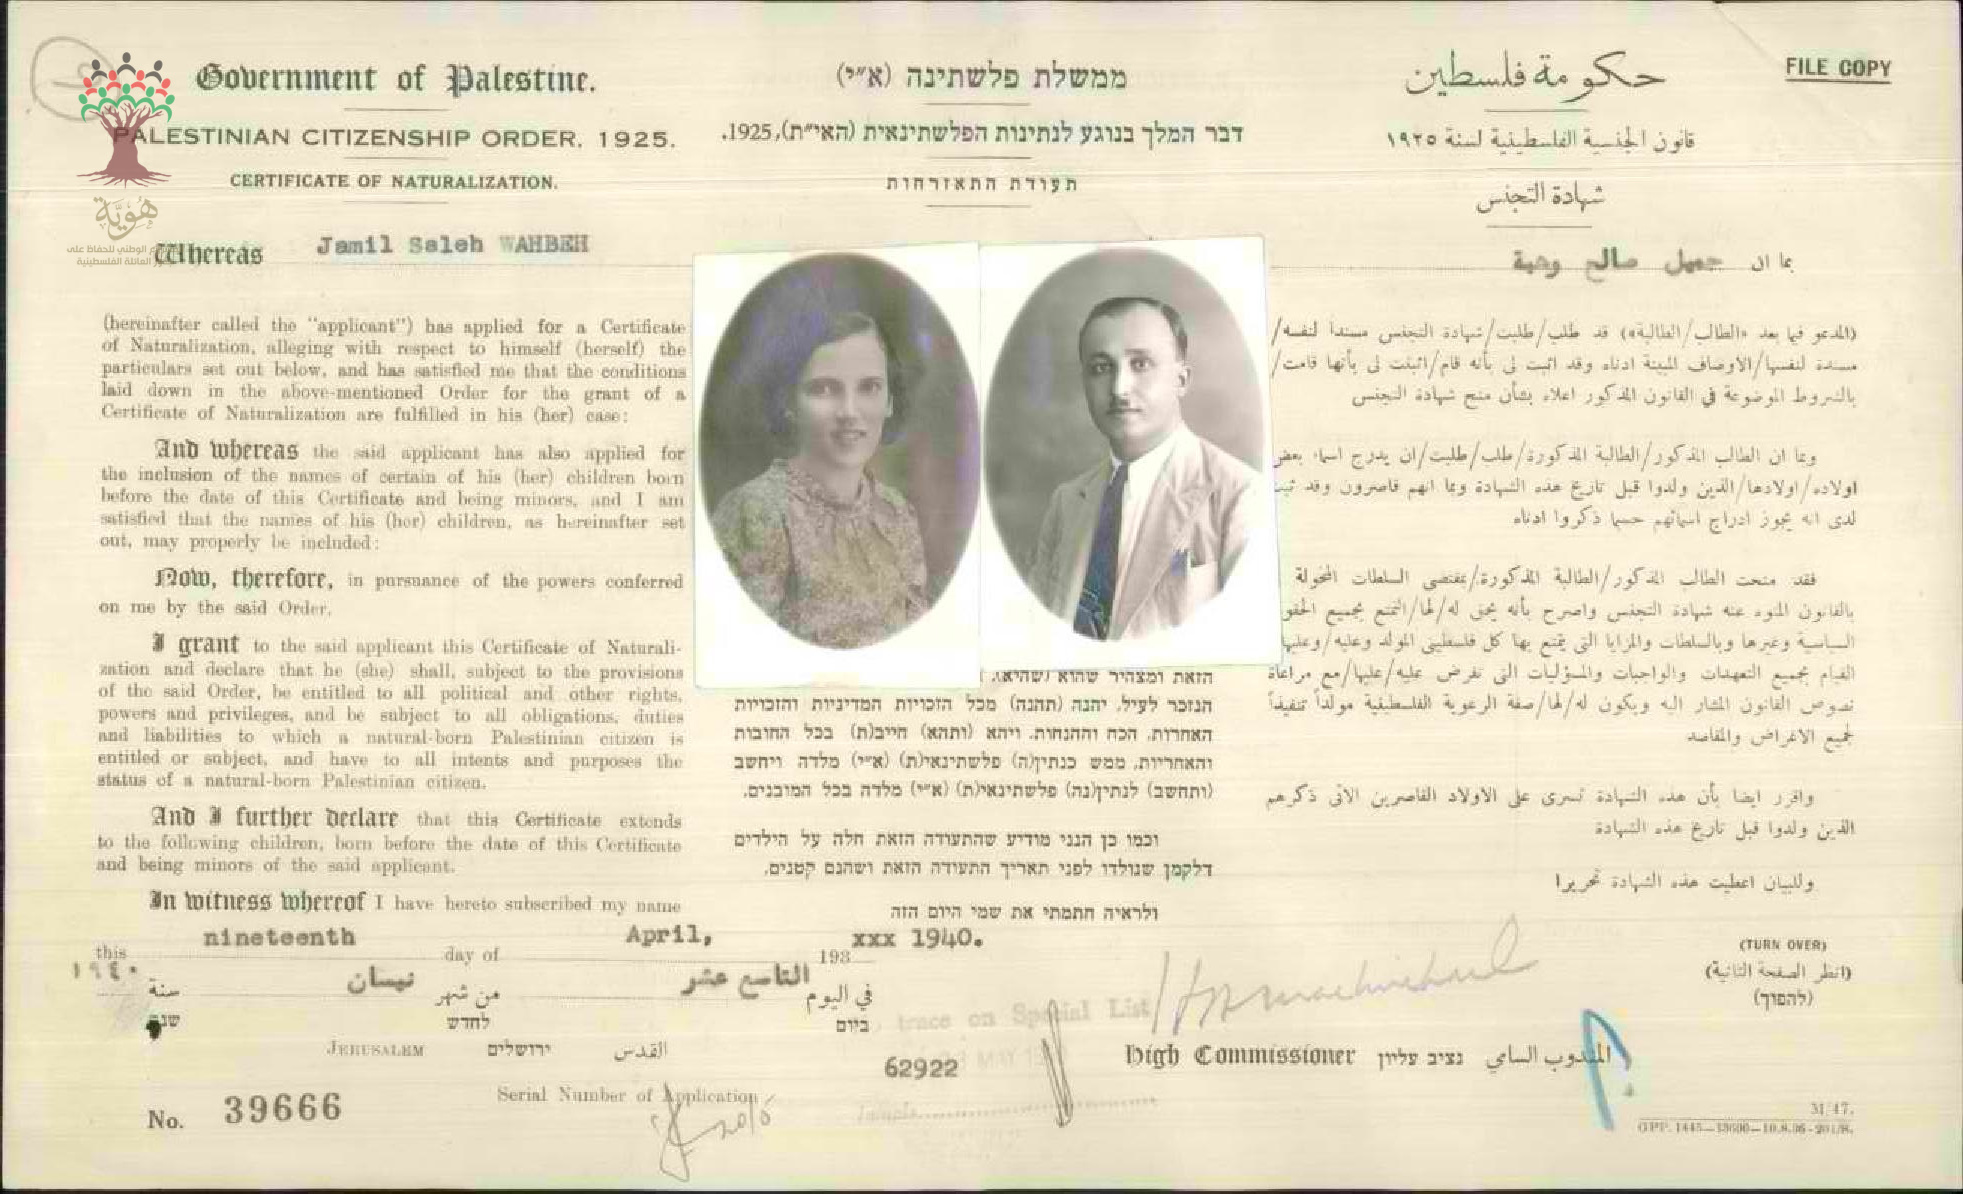 FILE COPY
Government of Palestine.
PALESTINIAN CITIZENSHIP ORDER, 1925.
CERTIFICATE OF NATURALIZATION.
هُوِيَّة
Whereas Jamil Saleh WAHBEH
(hereinafter called the "applicant") has applied for a Certificate
of Naturalization, alleging with respect to himself (herself) the
particulars set out below, and has satisfied me that the conditions
laid down in the above-mentioned Order for the grant of a
Certificate of Naturalization are fulfilled in his (her) case:
And whereas the said applicant has also applied for
the inclusion of the names of certain of his (her) children born
before the date of this Certificate and being minors, and I am
satisfied that the names of his (her) children, as hereinafter set
out, may properly be included:
Now, therefore, in pursuance of the powers conferred
on me by the said Order,
I grant to the said applicant this Certificate of Naturali-
zation and declare that he (she) shall, subject to the provisions
of the said Order, be entitled to all political and other rights,
powers and privileges, and be subject to all obligations, duties
and liabilities to which a natural-born Palestinian citizen is
entitled or subject, and have to all intents and purposes the
status of a natural-born Palestinian citizen.
And I further declare that this Certificate extends
to the following children, born before the date of this Certificate
and being minors of the said applicant.
In witness whereof I have hereto subscribed my name
ממשלת פלשתינה (א״י)
דבר המלך בנוגע לנתינות הפלשתינאית (האי״ת), 1925.
תעודת התאזרחות
הזאת ומצהיר שהוא (שהיא),
הנזכר לעיל, יהנה (תהנה) מכל הזכויות המדיניות והזכויות
האחרות, הכח וההנחות, ויהא (ותהא) חייב(ת) בכל החובות
והאחריות, ממש כנתין(ה) פלשתינאי(ת) (א״י) מלדה ויחשב
(ותחשב) לנתין(נה) פלשתינאי(ת) (א״י) מלדה בכל המובנים.
וכמו כן הנני מודיע שהתעודה הזאת חלה על הילדים
דלקמן שנולדו לפני תאריך התעודה הזאת ושהנם קטנים.
ולראיה חתמתי את שמי היום הזה
حكومة فلسطين
قانون الجنسية الفلسطينية لسنة ١٩٢٥
شهادة التجنس
بما ان جميل صالح وهبة
(المدعو فيما بعد «الطالب/الطالبة») قد طلب/طلبت/شهادة التجنس مسنداً لنفسه/
مسندة لنفسها/الاوصاف المبينة ادناه وقد اثبت لي بأنه قام/اثبتت لي بأنها قامت/
بالشروط الموضوعة في القانون المذكور اعلاه بشأن منح شهادة التجنس
وبما ان الطالب المذكور/الطالبة المذكورة/طلب/طلبت/ان يدرج اسماء بعض
اولاده/اولادها/الذين ولدوا قبل تاريخ هذه الشهادة وبما انهم قاصرون وقد ثبت
لدى انه يجوز ادراج اسمائهم حسبما ذكروا ادناه
فقد منحت الطالب المذكور/الطالبة المذكورة/بمقتضى السلطات المخولة
بالقانون المنوه عنه شهادة التجنس واصرح بأنه يحق له/لها/التمتع بجميع الحقوق
السياسية وغيرها وبالسلطات والمزايا التي يتمتع بها كل فلسطيني المولد وعليه/وعليها
القيام بجميع التعهدات والواجبات والمسؤليات التي تفرض عليه/عليها/مع مراعاة
نصوص القانون المشار اليه ويكون له/لها/صفة الرعوية الفلسطينية مولداً تنفيذاً
لجميع الاغراض والمقاصد
واقرر ايضا بأن هذه الشهادة تسرى على الاولاد القاصرين الآتى ذكرهم
الذين ولدوا قبل تاريخ هذه الشهادة
وللبيان اعطيت هذه الشهادة تحريرا
this nineteenth day of April, 193 xxx 1940.
في اليوم التاسع عشر من شهر نيسان سنة ١٩٤٠
ביום לחדש שנת
JERUSALEM ירושלים القدس
trace on Special List
62922
Serial Number of Application
No. 39666
High Commissioner נציב עליון المندوب السامي
(TURN OVER)
(انظر الصفحة الثانية)
(להפוך)
M/47.
GPP. 1445—13600—10.8.36-201/8.